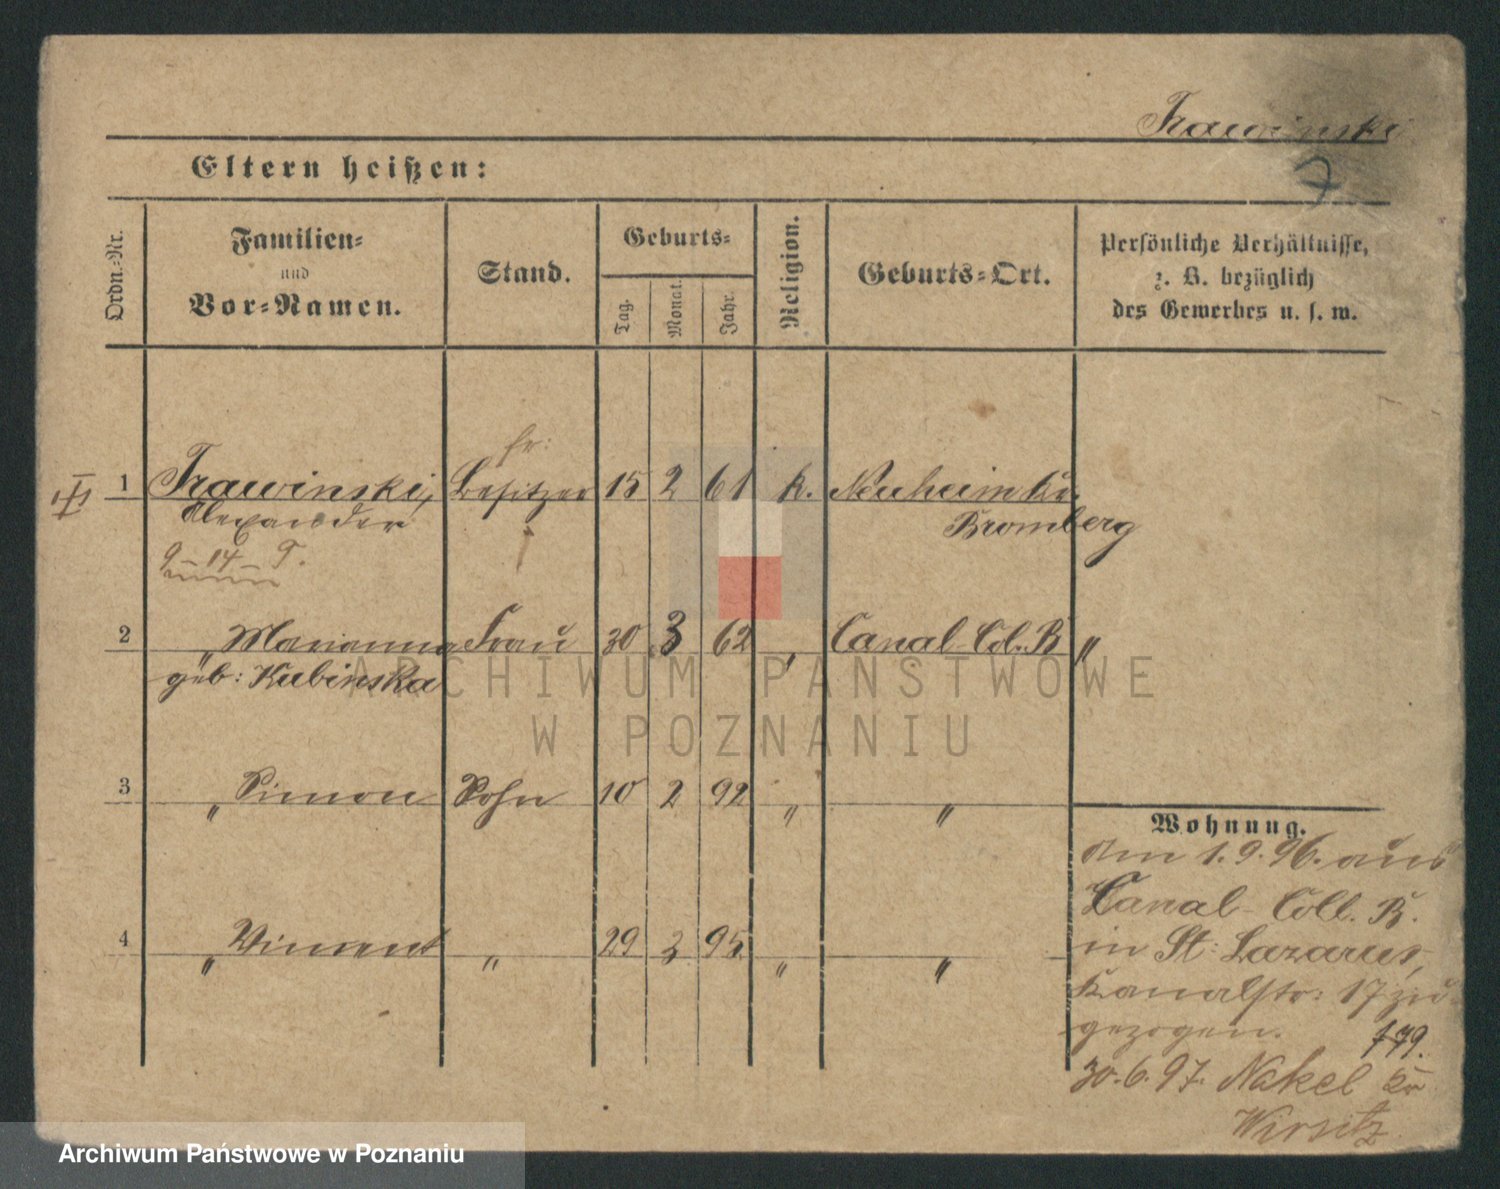 Trawinski
7
Eltern heißen:
Ordn.-Nr.
Familien-
und
Vor-Namen.
Stand.
Geburts-
Tag.
Monat.
Jahr.
Religion.
Geburts-Ort.
Persönliche Verhältnisse,
z. B. bezüglich
des Gewerbes u. s. w.
1 Trawinski, Besitzer 15 2 61 k. Neuheim Kr.
Alexander Bromberg
9 - 14 - T.
2 " Marianna Frau 30 3 62 " Canal-Col. B "
geb: Kubinska
3 " Simon Sohn 10 2 92 " "
4 " Vincent " 29 3 95 " "
Wohnung.
Am 1.9.96. aus
Canal-Coll. B.
in St: Lazarus,
Kanalstr: 17 zu-
gezogen.
179.
30.6.97. Nakel Kr
Wirsitz
ARCHIWUM PAŃSTWOWE
W POZNANIU
Archiwum Państwowe w Poznaniu